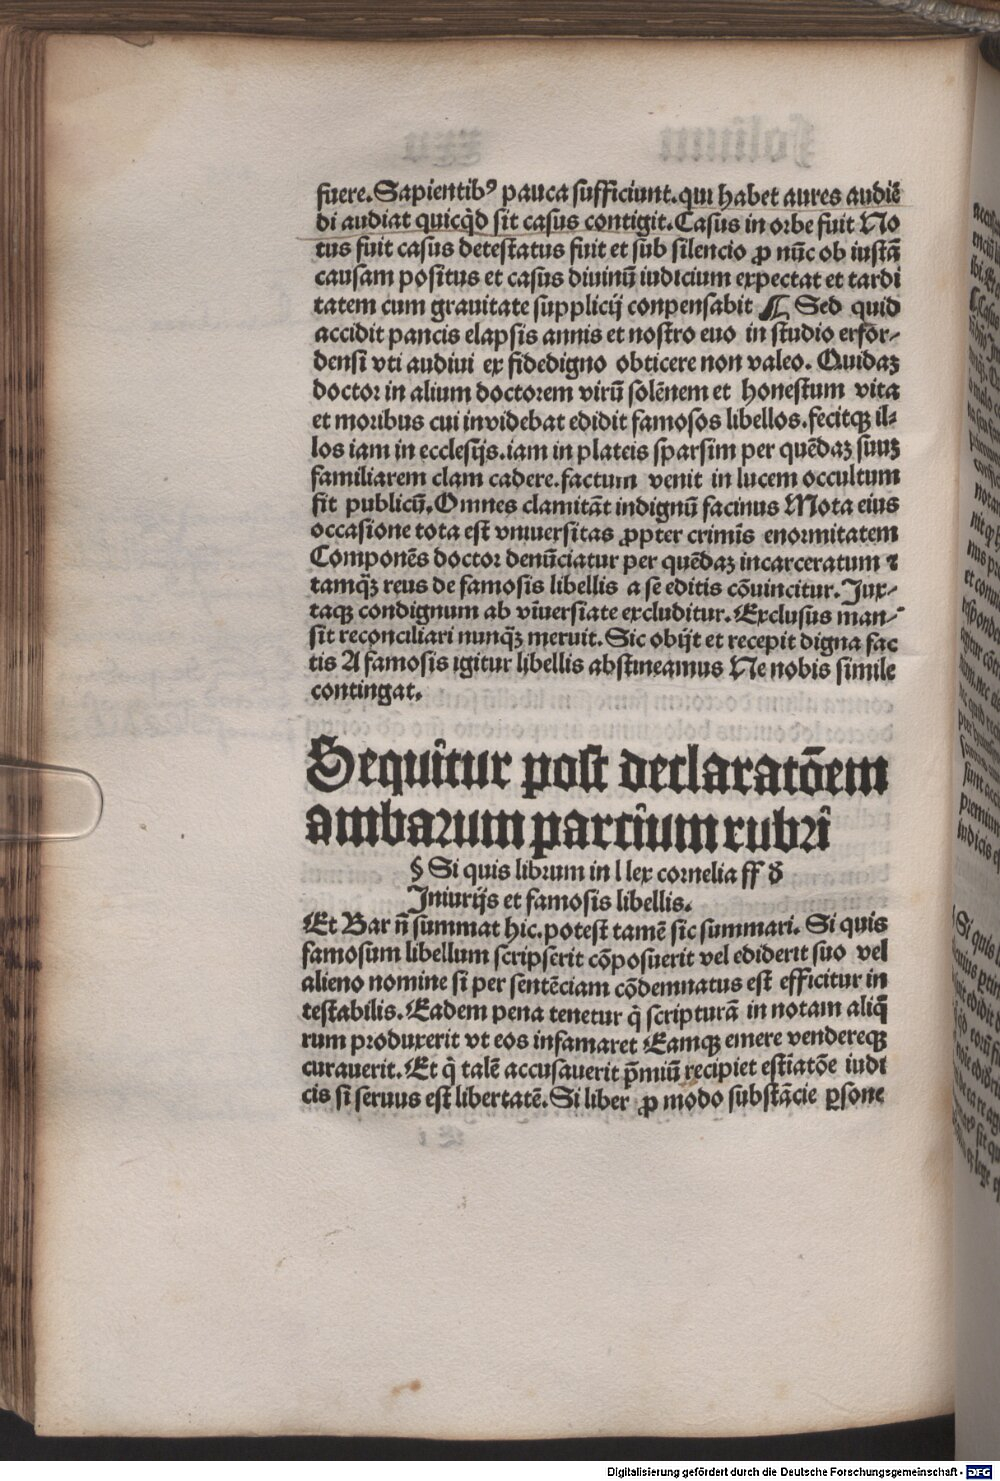 fuere. Sapientibꝰ pauca sufficiunt. qui habet aures audiē
di audiat quicq̄d sit casus contigit. Casus in orbe fuit No
tus fuit casus detestatus fuit et sub silencio ꝓ nūc ob iustā
causam positus et casus diuinū iudicium expectat et tardi
tatem cum grauitate supplicij conpensabit ¶ Sed quid
accidit pancis elapsis annis et nostro euo in studio erfor-
densi vti audiui ex fidedigno obticere non valeo. Quidaꝫ
doctor in alium doctorem virū solēnem et honestum vita
et moribus cui invidebat edidit famosos libellos. fecitqꝫ il-
los iam in ecclesijs. iam in plateis sparsim per quēdaꝫ suuꝫ
familiarem clam cadere. factum venit in lucem occultum
fit publicū. Omnes clamitāt indignū facinus Mota eius
occasione tota est vniuersitas ꝓpter crimīs enormitatem
Componēs doctor denūciatur per quēdaꝫ incarceratum ⁊
tamqꝫ̄ reus de famosis libellis a se editis cōuincitur. Jux-
taqꝫ condignum ab vīuersiate excluditur. Exclusus man-
sit reconciliari nunqꝫ̄ meruit. Sic obijt et recepit digna fac
tis A famosis igitur libellis abstineamus Ne nobis simile
contingat.
Sequitur post declaratōem
ambarum parcium rubri
§ Si quis librum in l lex cornelia ff ꝺ̄
Iniurijs et famosis libellis.
Et Bar n̄ summat hic. potest tamē sic summari. Si quis
famosum libellum scripserit cōposuerit vel ediderit suo vel
alieno nomine si per sentēciam cōdemnatus est efficitur in
testabilis. Eadem pena tenetur q̄ scripturā in notam aliq̄
rum produxerit vt eos infamaret Eamqꝫ emere vendereqꝫ
curauerit. Et q̄ talē accusauerit p̄miū recipiet estīatōe iudi
cis si seruus est libertatē. Si liber ꝓ modo substācie ꝑsone
Digitalisierung gefördert durch die Deutsche Forschungsgemeinschaft - DFG